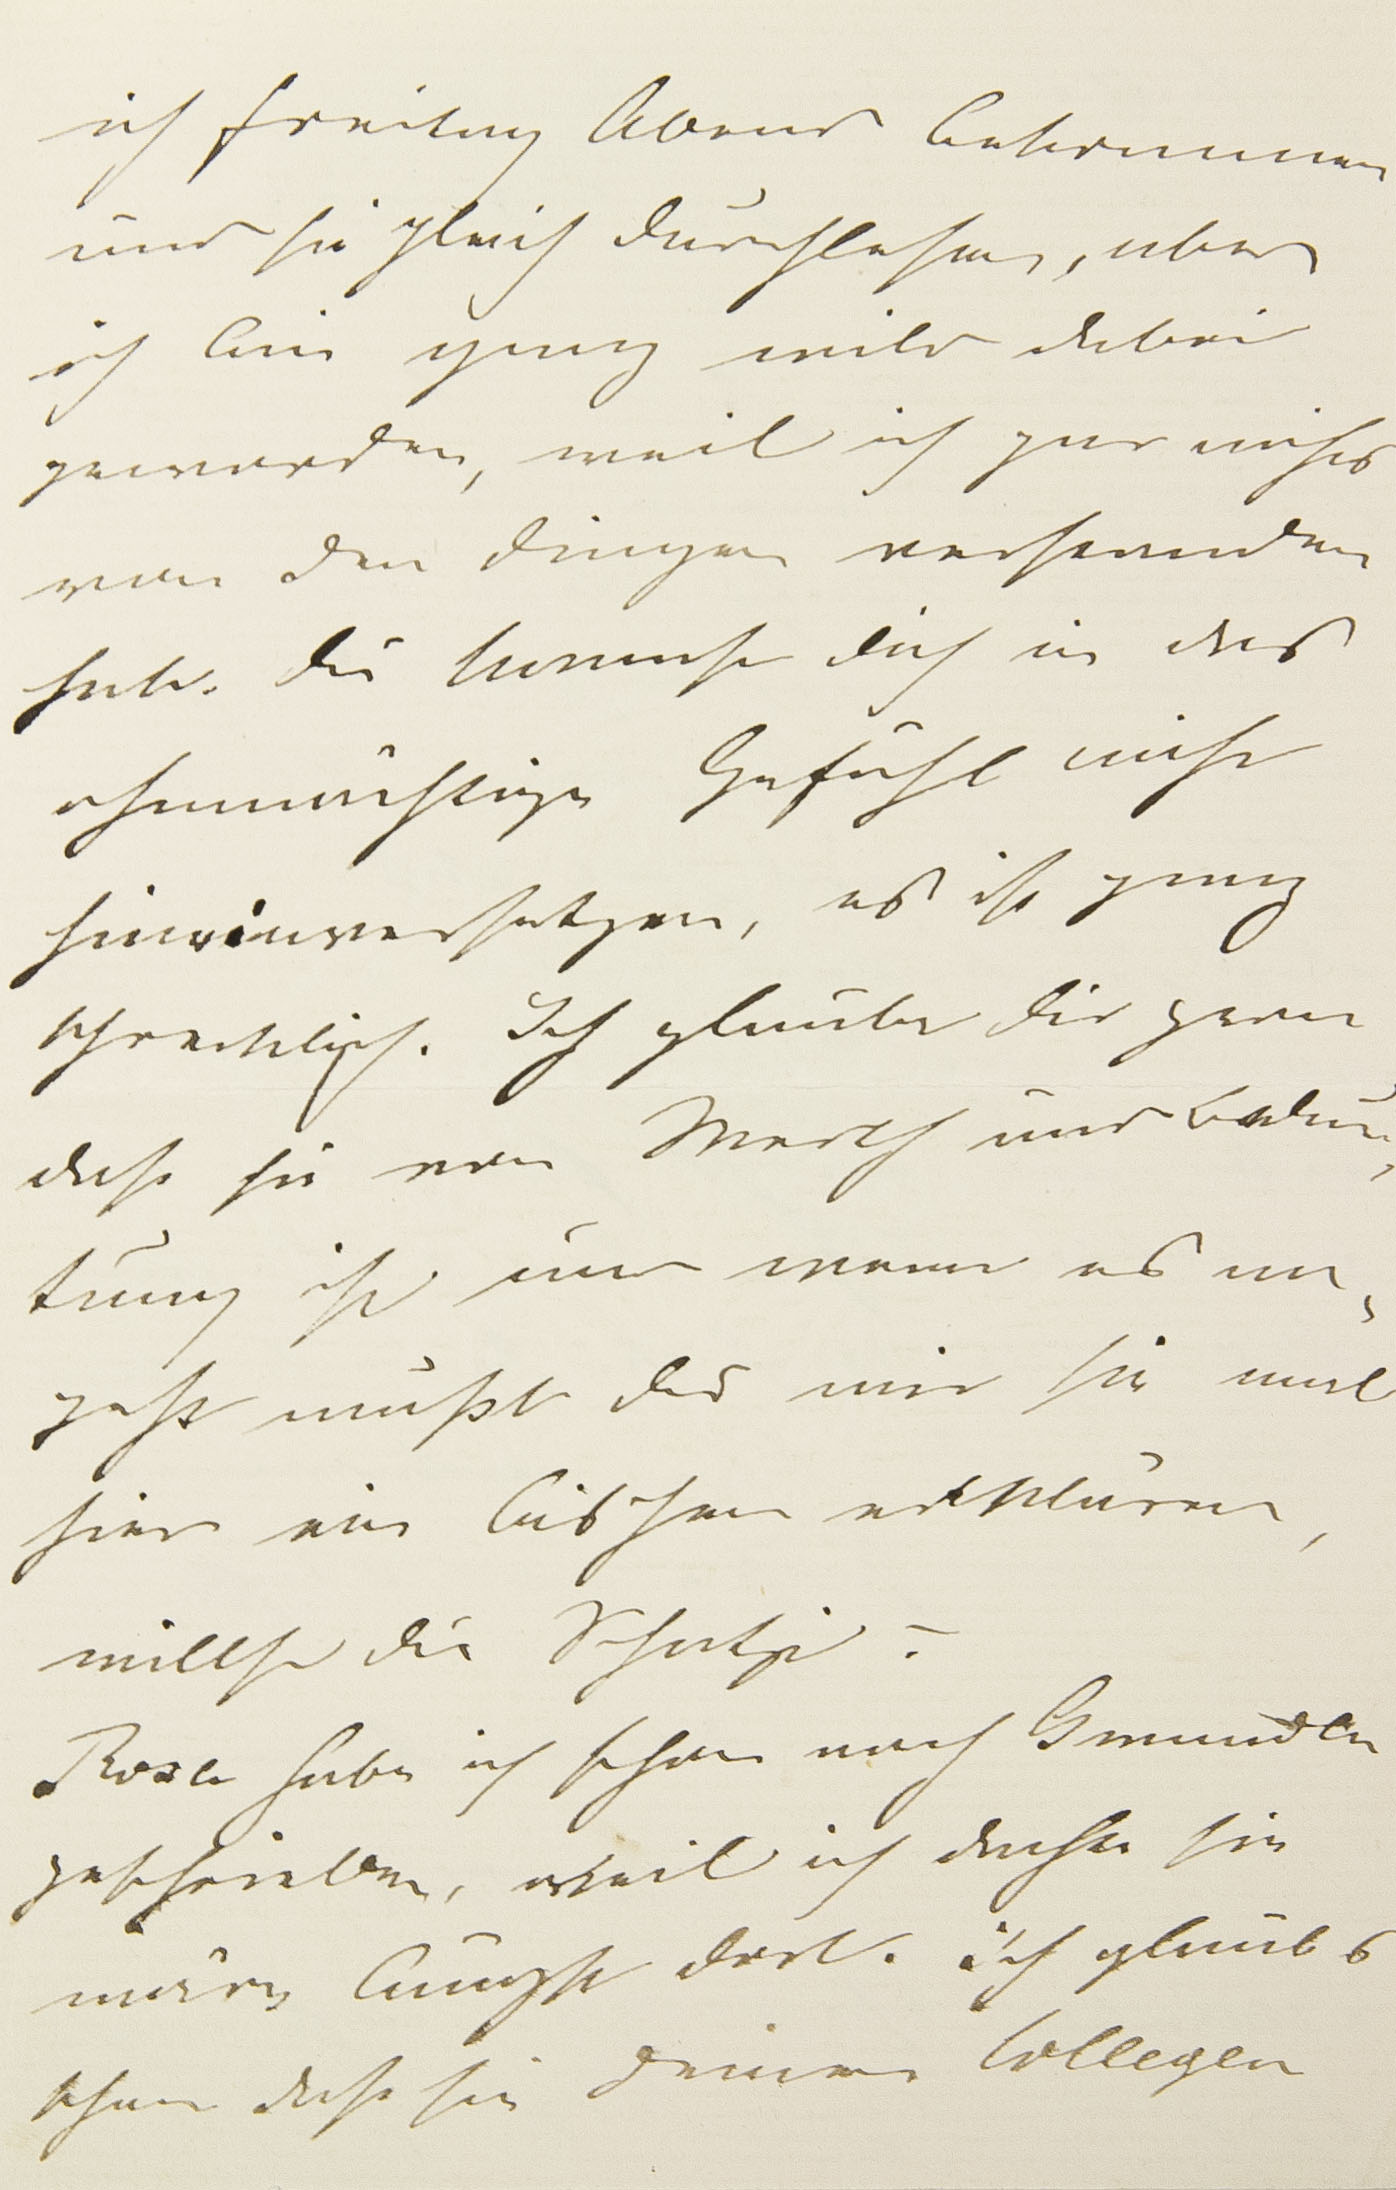 ich Freitag Abend bekommen
und sie gleich durchlesen, aber
ich bin ganz wild dabei
geworden, weil ich gar nichts
von den Dingen verstanden
habe. Du kannst dich in das
ohnmächtige Gefühl nicht
hineinversetzen, es ist ganz
schrecklich. Ich glaube dir gern
dass sie von Werth und Bedeu-
tung ist und wenn es an-
geht mußt du mir sie mal
hier ein bischen erklären,
willst du Schatzi?
Rosa habe ich schon nach Gmunden
geschrieben, weil ich dachte sie
wäre längst dort. ich glaub's
schon dass sie deinen Collegen